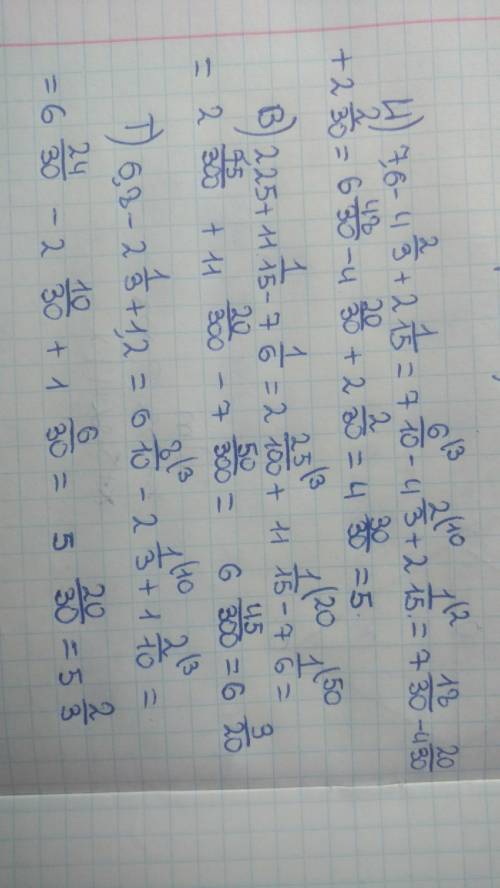 И) 7,6 - 4 2/3 + 2 1/15 = 7 6/10 (3 - 4 2/3 (10 + 2 1/15 (2 = 7 18/30 - 4 20/30
+ 2 2/30 = 6 48/30 - 4 20/30 + 2 2/30 = 4 30/30 = 5.
В) 2,25 + 11 1/15 - 7 1/6 = 2 25/100 (3 + 11 1/15 (20 - 7 1/6 (50 =
= 2 75/300 + 11 20/300 - 7 50/300 = 6 45/300 = 6 3/20
Т) 6,8 - 2 1/3 + 1,2 = 6 8/10 (3 - 2 1/3 (10 + 1 2/10 (3 =
= 6 24/30 - 2 10/30 + 1 6/30 = 5 20/30 = 5 2/3